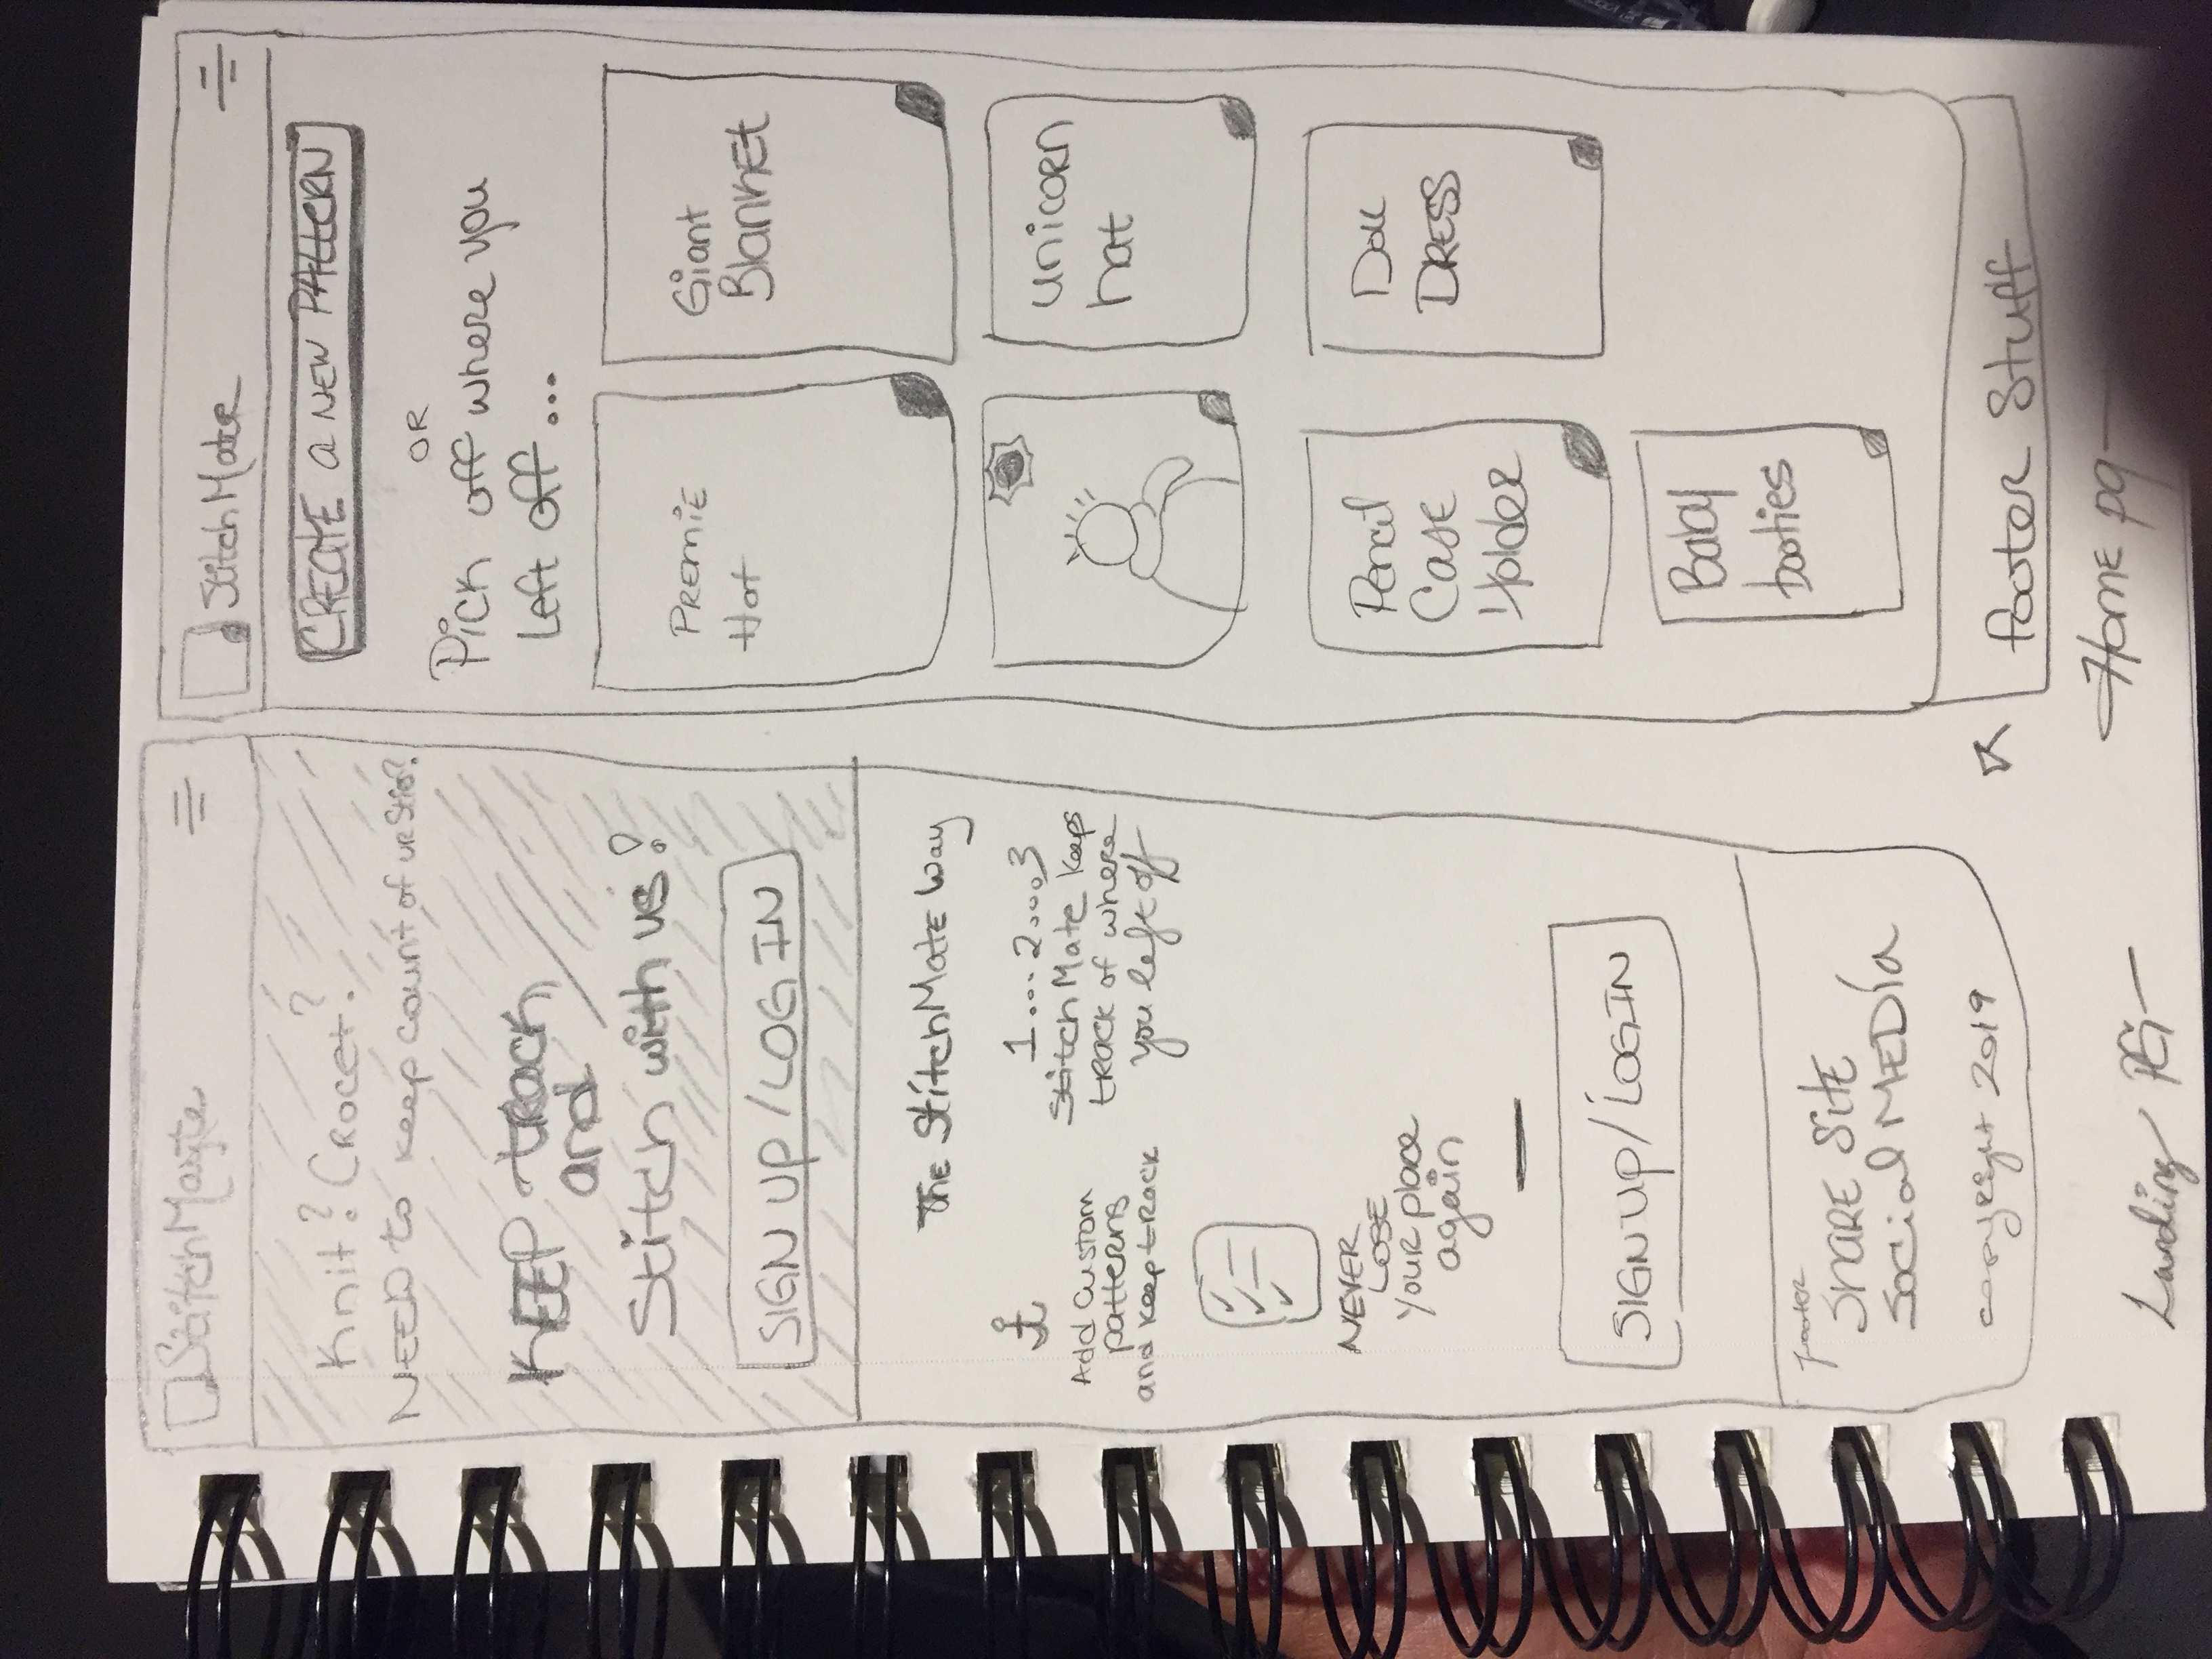 StitchMate
Knit? Crocet?
NEED to keep count of ur
KEEP track
and
Stitch with us!
SIGN UP/LOG IN
The StitchMate Way
1...2...3
Add Custom
patterns
and keep track
StitchMate keeps
track of where
you left off
NEVER
LOSE
Your place
again
SIGN UP/LOGIN
footer
SHARE SITE
Social MEDIA
copyright 2019
Landing PG
StitchMate
CREATE a NEW PATTERN
OR
Pick off where you
left off...
PREMIE
Hat
Giant
Blanket
unicorn
hat
Pencil
Case
Holder
Doll
DRESS
Baby
booties
footer Stuff
Home pg